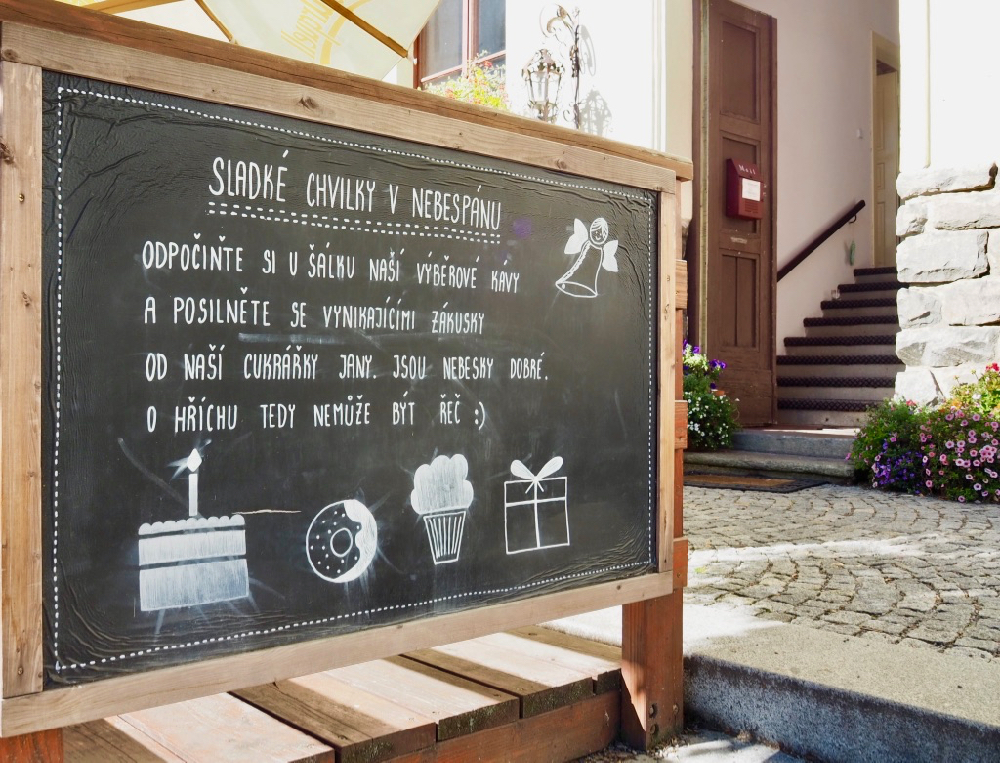 SLADKÉ CHVILKY V NEBESPÁNU
ODPOČIŇTE SI U ŠÁLKU NAŠÍ VÝBĚROVÉ KÁVY
A POSILNĚTE SE VYNIKAJÍCÍMI ZÁKUSKY
OD NAŠÍ CUKRÁŘKY JANY. JSOU NEBESKY DOBRÉ.
O HŘÍCHU TEDY NEMŮŽE BÝT ŘEČ :)